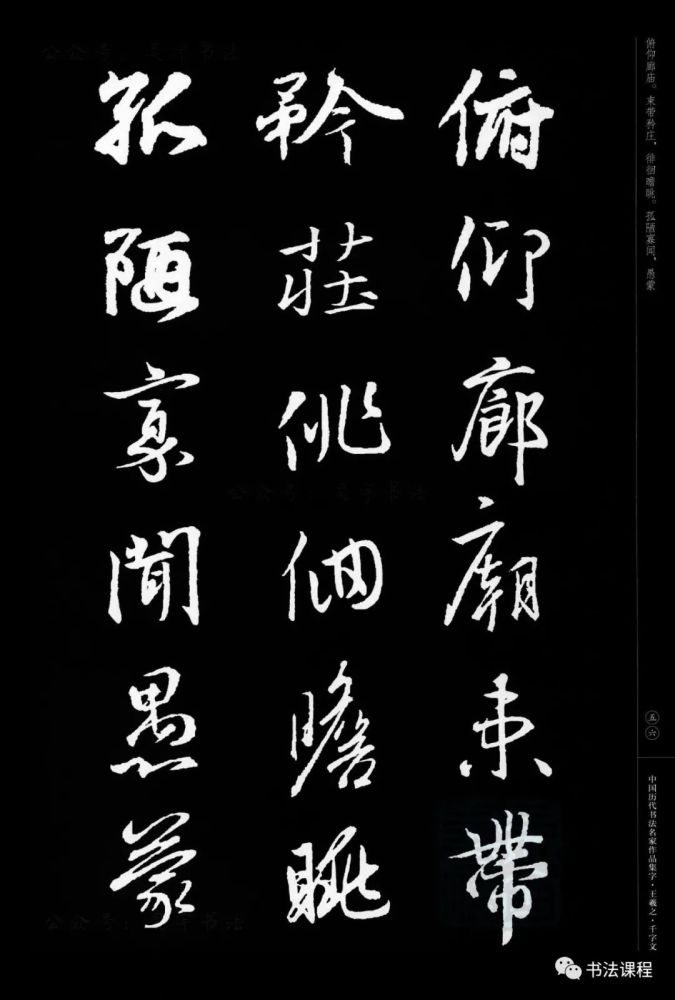 俯仰廊廟束帶
矜莊俳佪瞻眺
孤陋寡聞愚蒙
俯仰廊庙。束带矜庄，徘徊瞻眺。孤陋寡闻，愚蒙
五六
中国历代书法名家作品集字·王羲之·千字文
书法课程